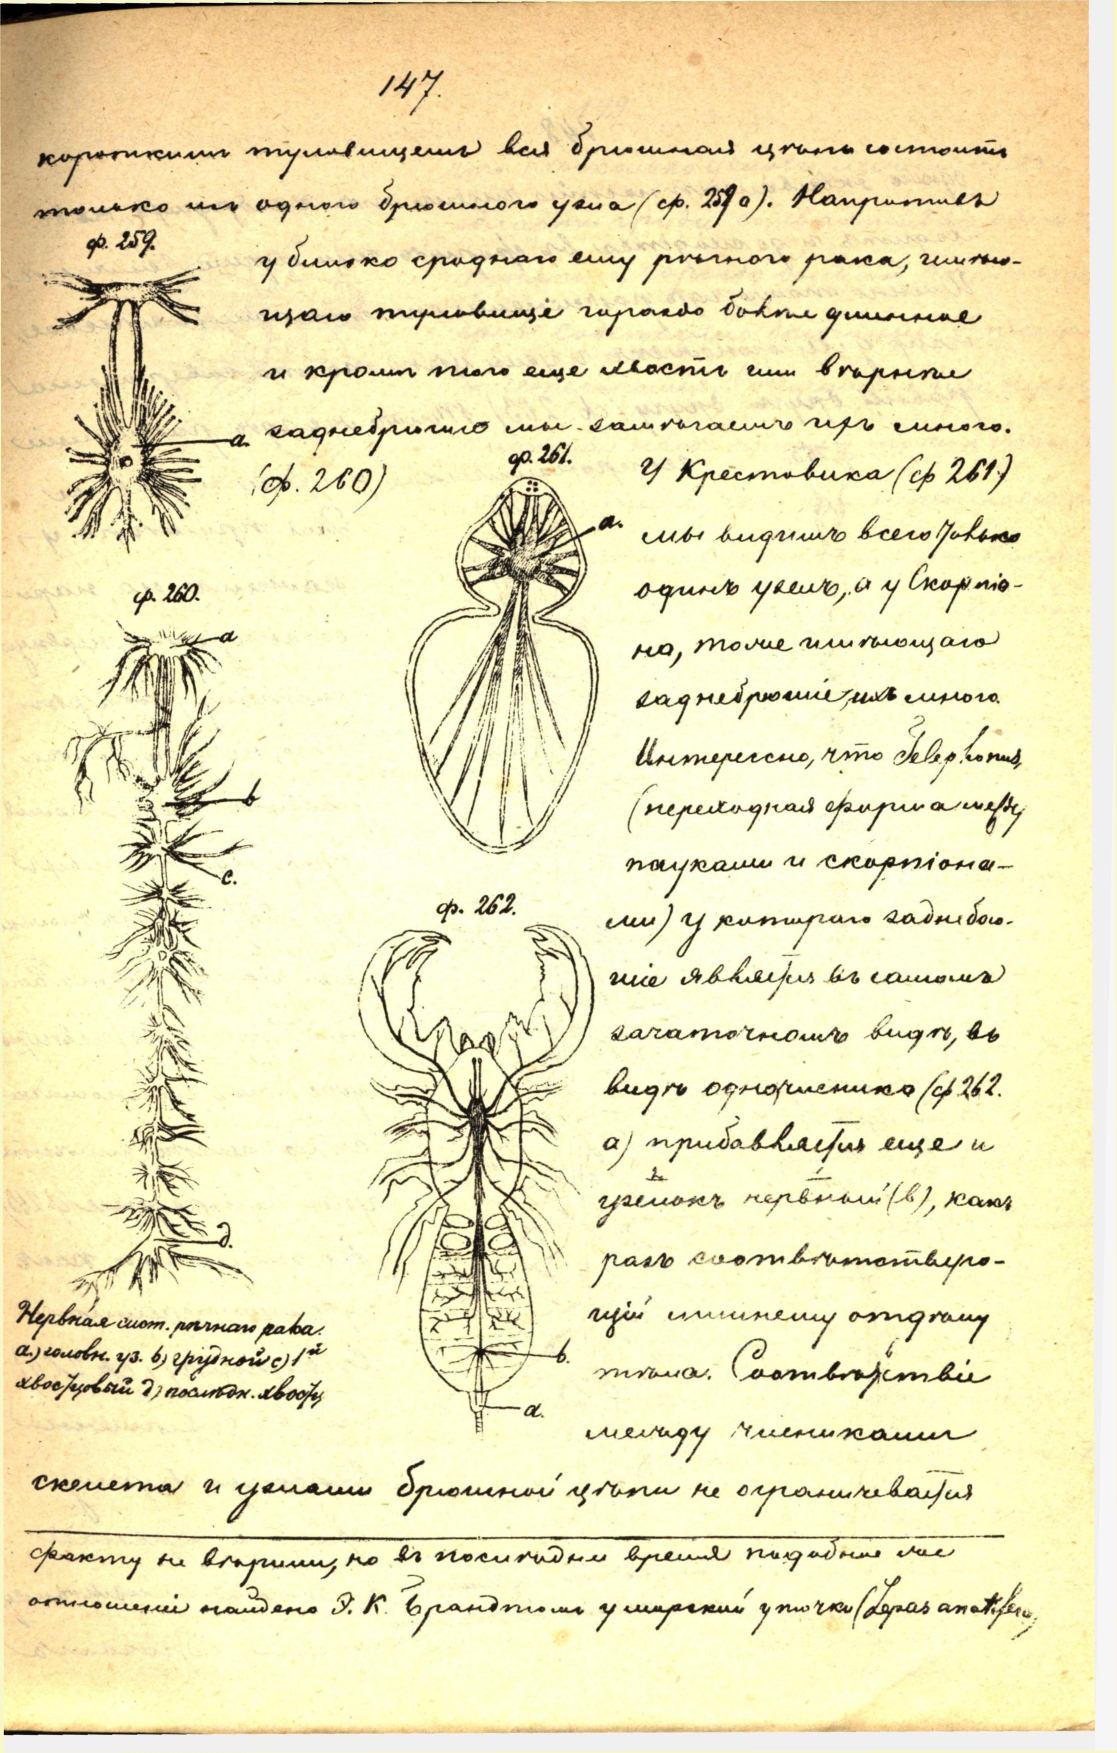 147.
короткимъ туловищемъ вся брюшная цѣпь состоитъ
только изъ одного брюшного узла (ф. 259 а). Напротивъ
ф. 259.
у близко сроднаго ему рѣчного рака, имѣю-
щаго туловище гораздо болѣе длинное
и кромѣ того еще хвостъ или вѣрнѣе
заднебрюшіе мы замѣчаемъ ихъ много.
а.
(ф. 260)
ф. 261.
У Крестовика (ф 261.)
а.
мы видимъ всего только
одинъ узелъ, а у Скорпіо-
ф. 260.
на, тоже имѣющаго
а
заднебрюшіе, ихъ много.
Интересно, что Telephonus,
(переходная форма между
в
пауками и скорпіона-
с.
ми) у котораго заднебрю-
ф. 262.
шіе является въ самомъ
зачаточномъ видѣ, въ
видѣ одночленика (ф 262.
а) прибавляется еще и
узелокъ нервный (в), какъ
разъ соотвѣтствую-
д.
щій лишнему отдѣлу
тѣла. Соотвѣтствіе
в.
а.
между члениками
Нервная сист. рѣчнаго рака.
а.) головн. уз. в) грудной с) 1й
хвостовый д) послѣдн. хвост.
скелета и узлами брюшной цѣпи не ограничевается
факту не вѣрили, но въ послѣднее время подобное же
отношеніе найдено Э. К. Брандтомъ у морской уточки (Lepas anatifera)